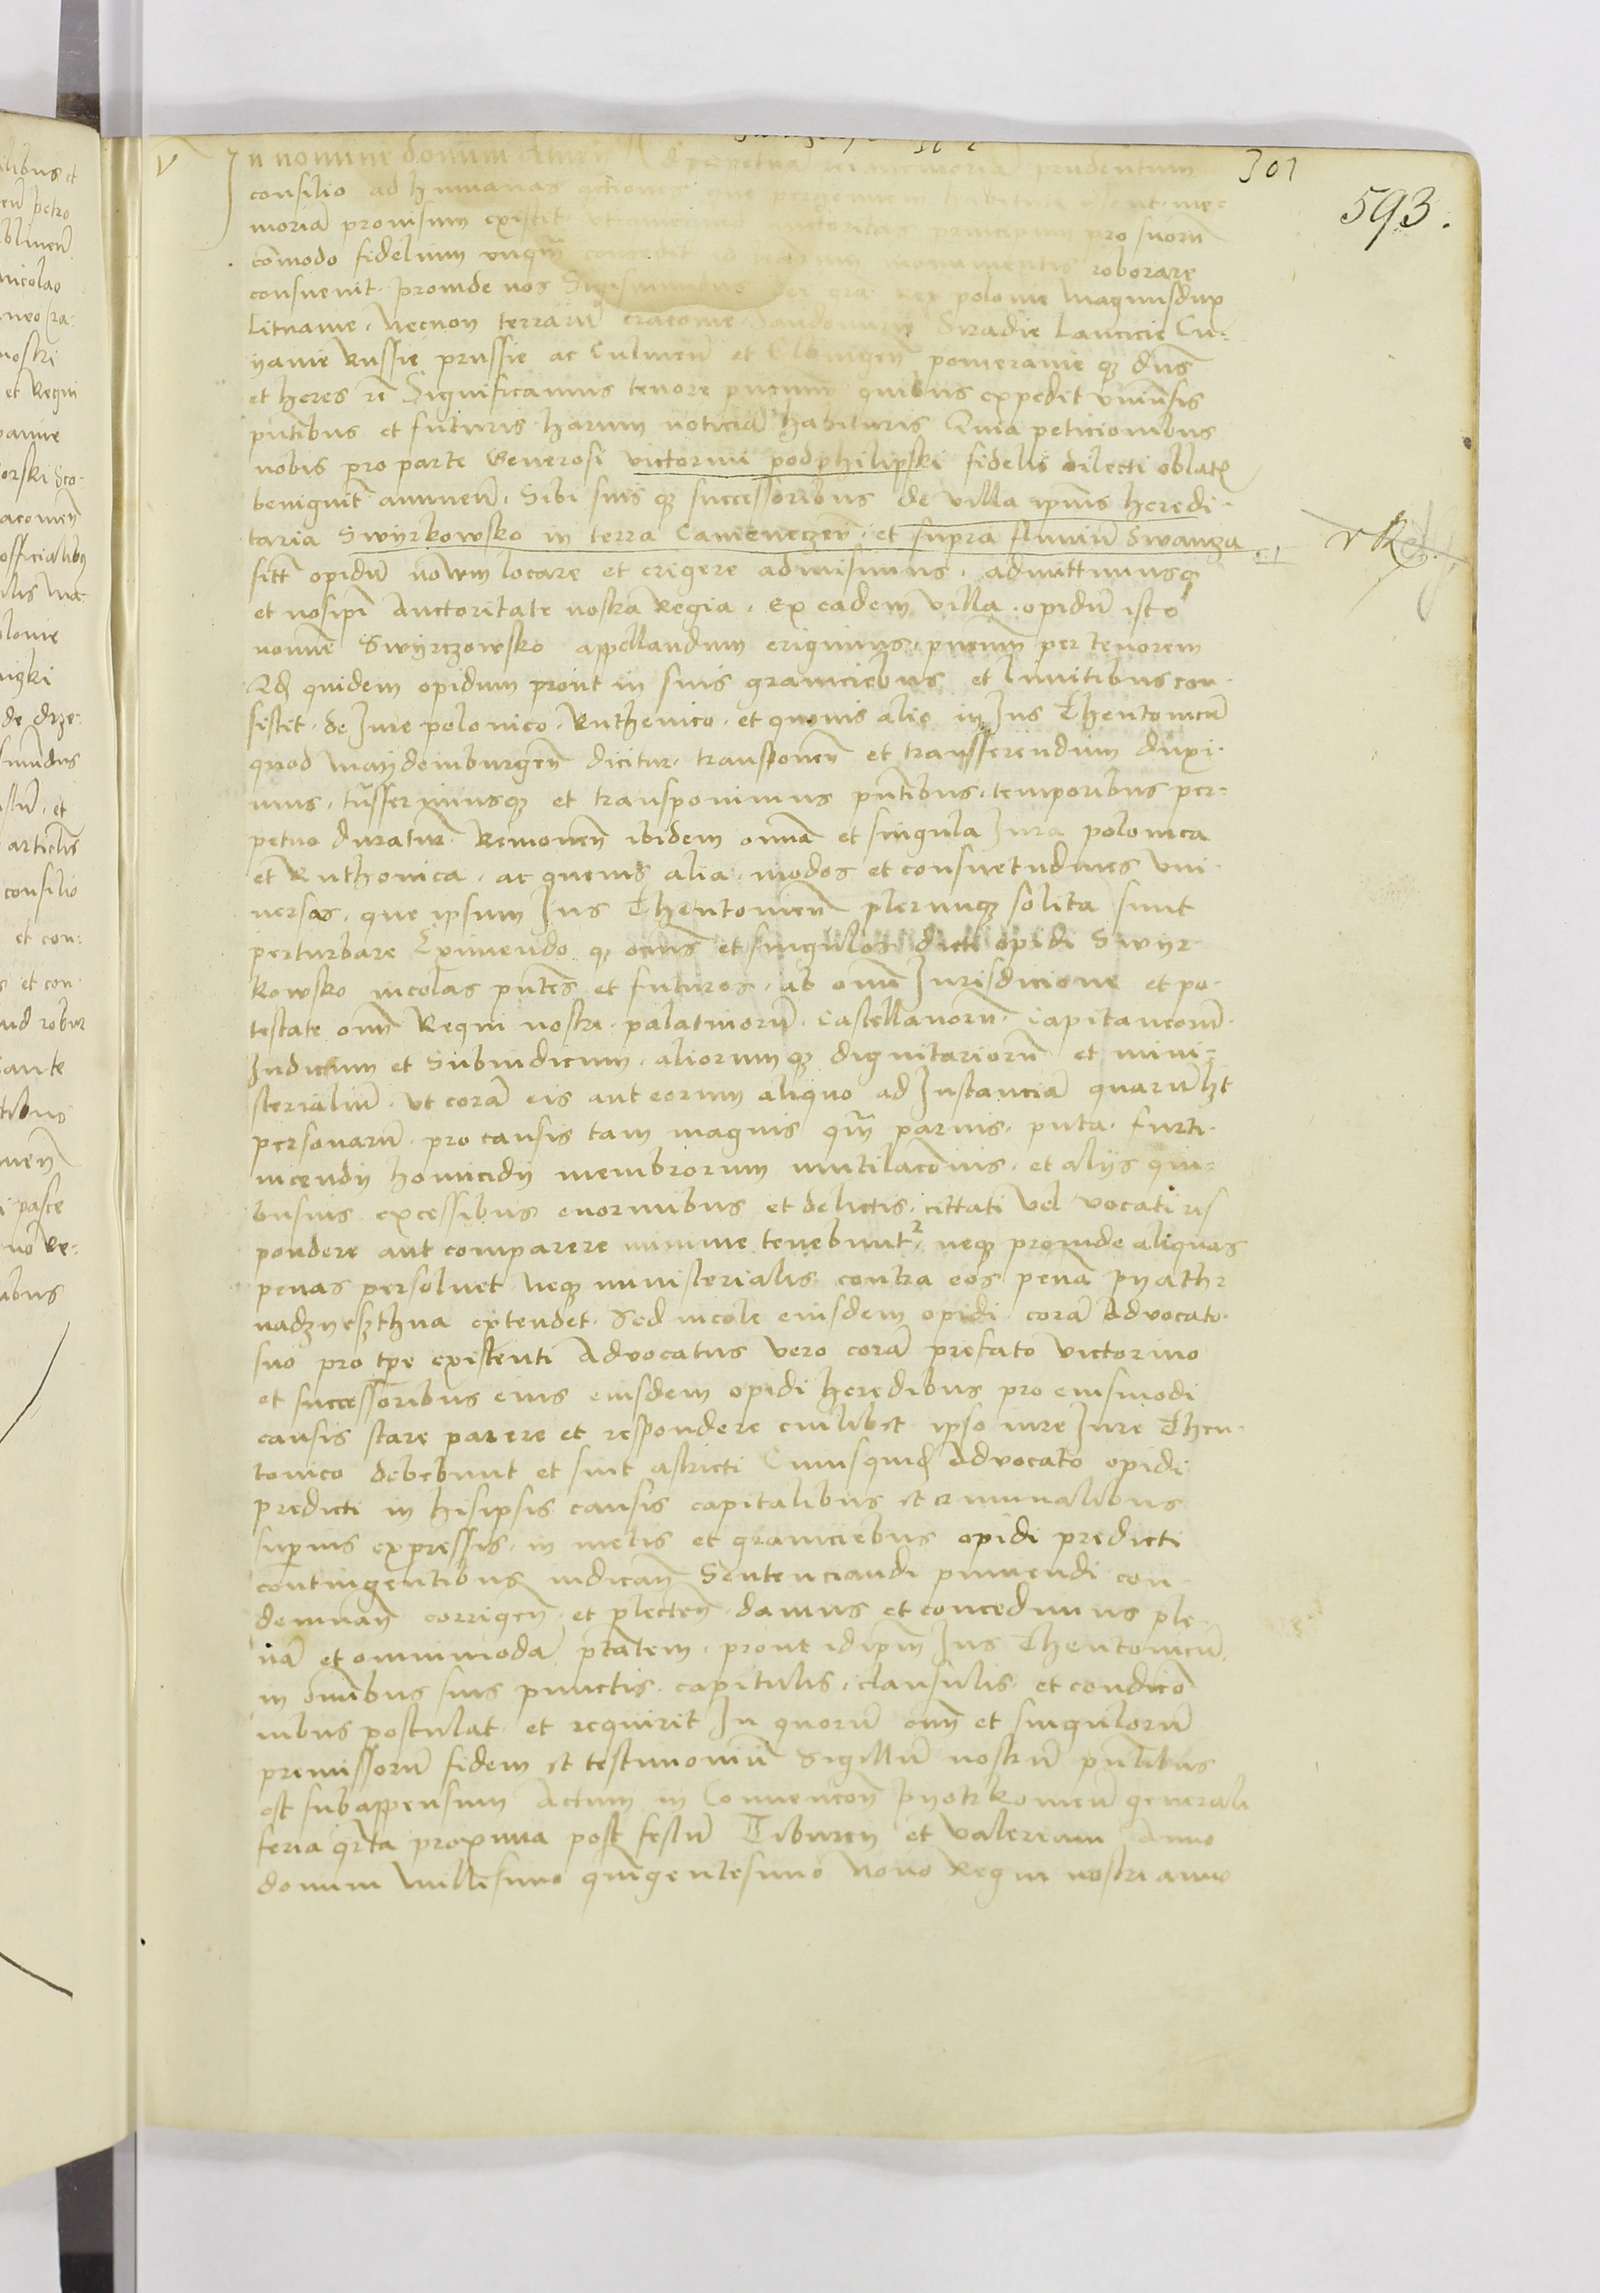 301
593.
In nomine domini amen Ad perpetuam rei memoriam prudentum
consilio ad humanas actiones que perhennem habitura sient me-
moriā provisum existit auctoritas principum pro suorū
cōmodo fidelium monumentis roborare
consuevit. proinde nos Sigismundus dei gra Rex polonie magnusdux
Litvanie. Necnon terrarū cracovie Sandomirie Siradie Lancicie Cu-
yavie Russie prussie ac Culmeñ et Elbingeñ pomeranie qȝ dns
et heres rc Significamus tenore pñtium quibus expedit universis
pñtibus et futuris harum noticiā habituris Quia peticionibus
nobis pro parte Generosi victorini podphilipski fidelis dilecti oblatis
benignit annueñ. Sibi suis qȝ successoribus de villa ipius heredi-
taria Swyrkowsko in terra Cameneczeñ. et supra fluviū Swanza
sitt opidū novum locare et erigere admisimus. admittimusqȝ
et nosipi Auctoritate nostra Regia. Ex eadem villa. opidū isto
nomīe Swyrczowsko appellandum erigimus. pñtium per tenorem
Qd quidem opidum prout in suis graniciebus et limitibus con-
sistit. de Jure polonico. Ruthenico. et quovis alio in Jus Theutonicū
quod Maydemburgeñ dicitur. transponeñ et transferendum duxi-
mus. trāsferimusqȝ et transponimus pñtibus. temporibus per-
petuo duratur. Removeñ ibidem omīa et singula Jura polonica
et Ruthenica. ac quevis alia. modos et consuetudines uni-
versas. que ipsum Jus Theutonicū plerumqȝ solita sunt
perturbare Eximendo qȝ omes et singulos dicti opidi Swyr-
kowsko incolas pñtes et futuros. ab omi Jurisdicione et po-
testate omī Regni nostri. palatinorū. Castellanorū. Capitaneorū.
Judicum et Subiudicum. aliorumqȝ dignitariorū et mini-
sterialiū. ut corā eis aut eorum aliquo ad Instanciā quarūlȝt
personarū. pro causis tam magnis qm̄ parvis. puta. furti.
incendij homicidij membrorum mutilacōnis. et alijs qui-
busvis excessibus enormibus et delictis. cittati vel vocati res
pondere aut comparere minime tenebunt². neqȝ proinde aliquas
penas persolvet Neqȝ ministerialis contra eos penā pyathr
nadzyeszthna extendet. Sed incole eiusdem opidi corā Advocato.
suo pro tpe existenti Advocatus vero corā prefato victorino
et successoribus eius eiusdem opidi heredibus pro eiusmodi
causis stare parere et respondere cuilibet ipso iure Jure Theu-
tonico debebunt et sint astricti Cuiusquid Advocato opidi
predicti in hisipsis causis capitalibus et criminalibus
superius expressis. in metis et graniciebus opidi predicti
contingentibus iudicañ Sentenciandi puniendi con-
demnañ corrigeñ et plecteñ. damus et concedimus ple-
nā et omnimodā ptātem. prout idipm Jus Theutonicū
in omībus suis punctis. capitulis. clausulis et condicō
nibus postulat. et requirit In quorū omī et singulorū
premissorū fidem et testimoniū Sigillū nostrū pñtibus
est subappensum Actum in Convencoñ pyotrkovieñ generali
feria qrta proxima post festū Tiburcij et valeriani Anno
domini Millesimo quingentesimo Nono Regni nostri anno